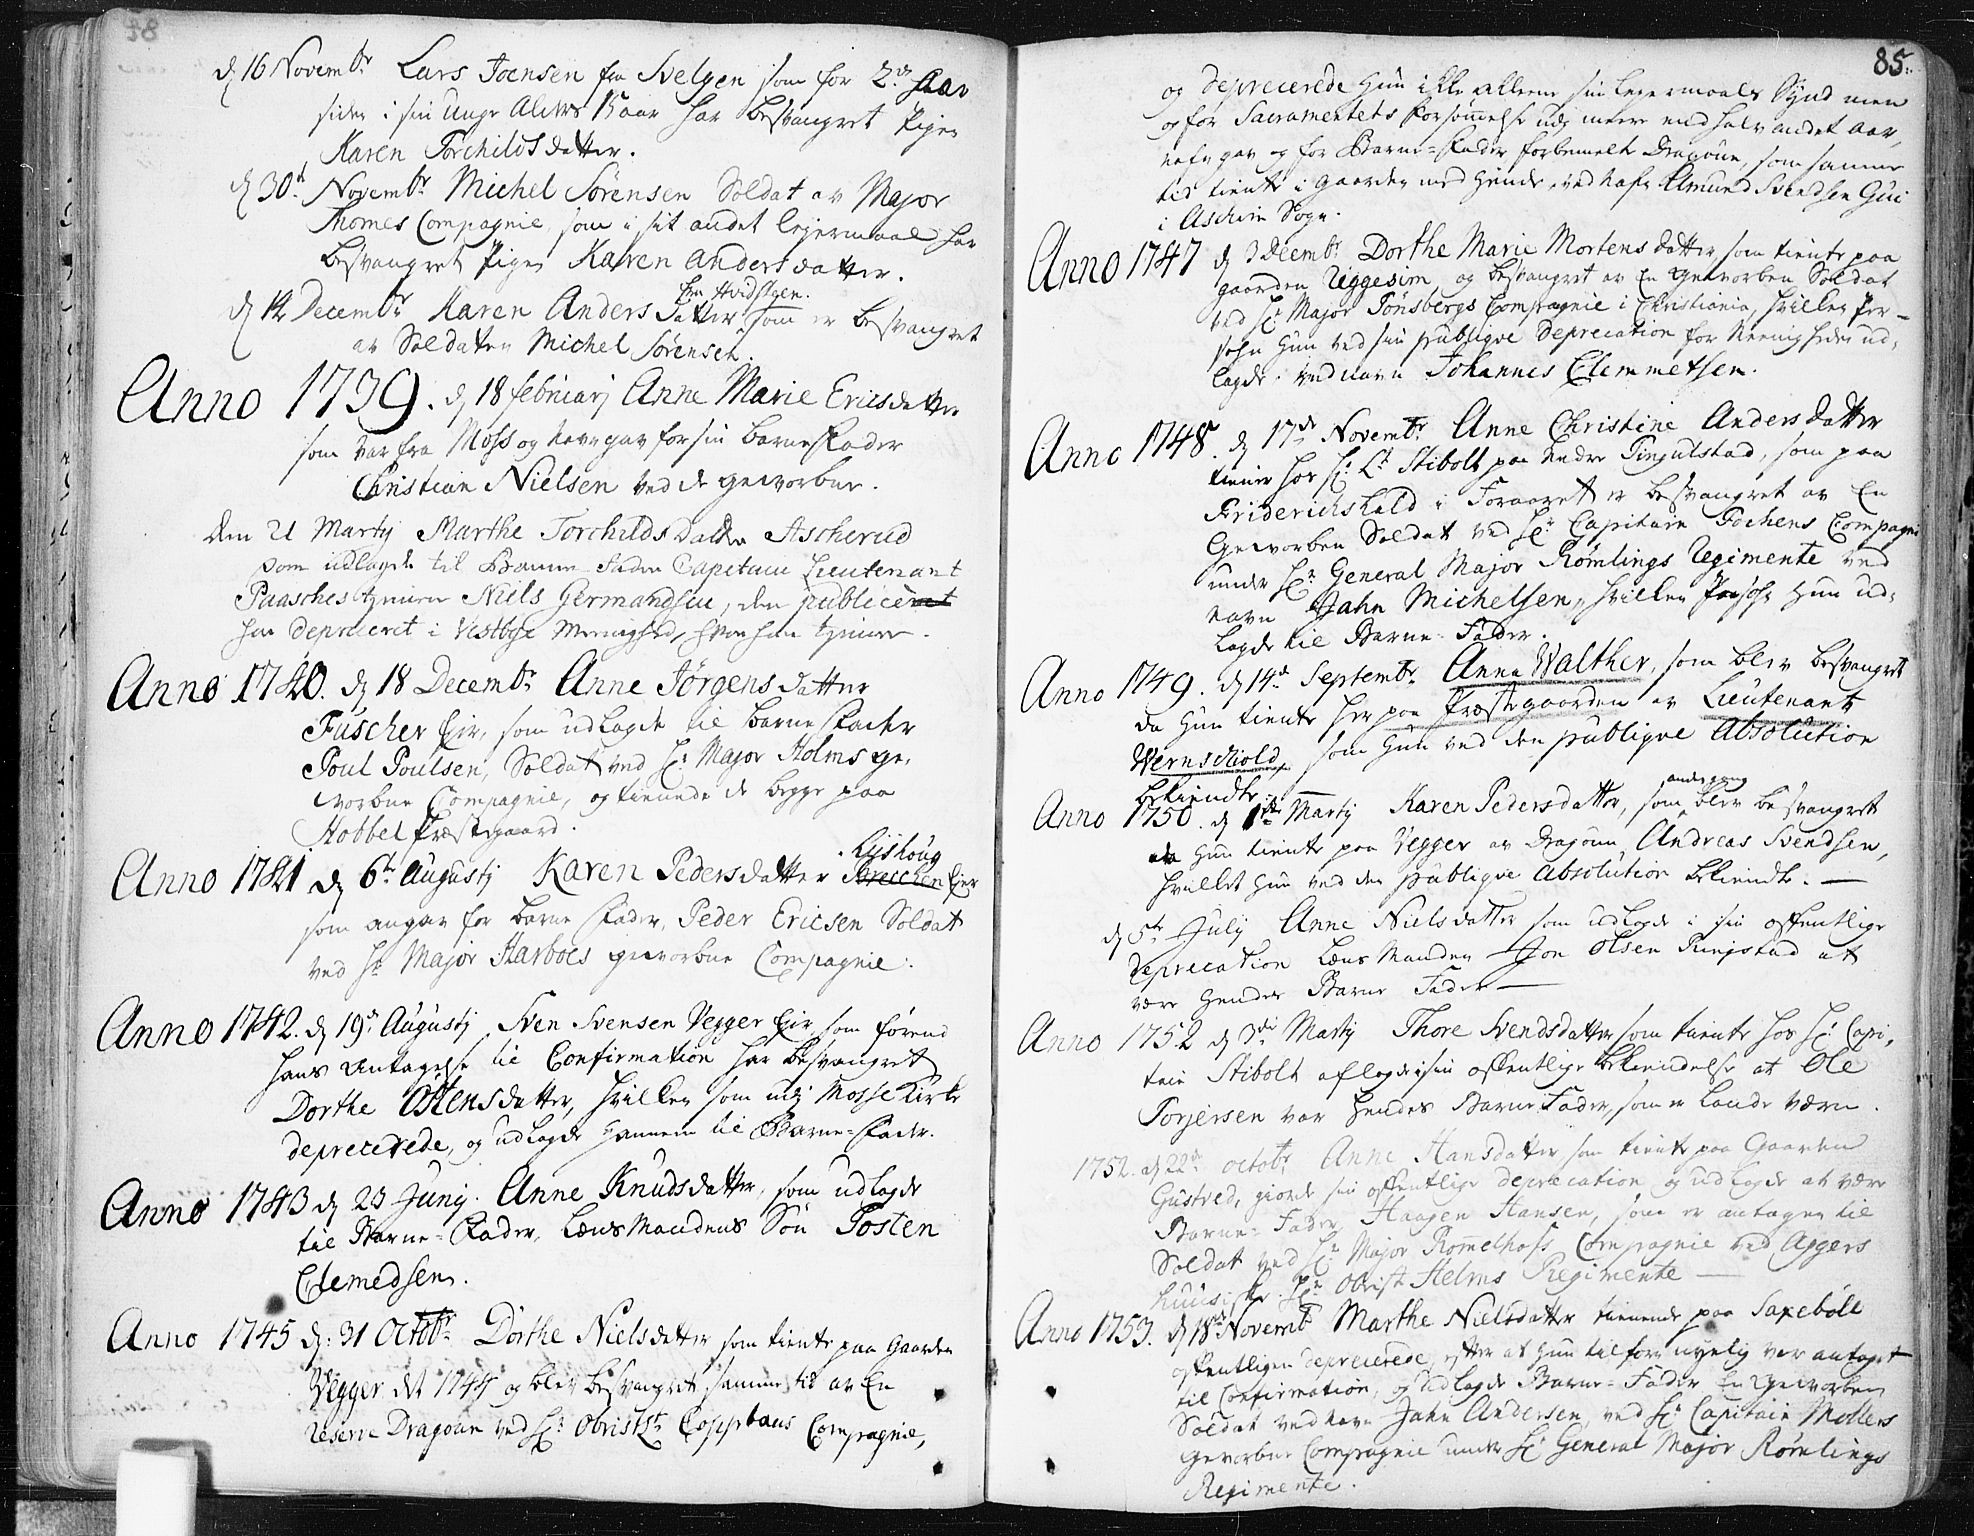 d 16 Novembr Lars Joensen fra Svelgen som for 2de Aar
siden i sin unge Alders 15 aar har besvangret Pigen
Karen Torchilds datter.
d 30te Novembr Michel Sörensen Soldat av Major
Thomes Compagnie, som i sit andet lejermaal har
besvangret Pigen Karen Anders datter.
fra Hvidsteen.
d 14 Decembr Karen Anders datter som er besvangret
av Soldaten Michel Sörensen.
Anno 1739. d 18 februarj Anne Marie Ericsdatter
som var fra Moss og navngav for sin barne Fader
Christian Nielsen ved de gevorbne.
den 21 Martj Marthe Torchilds datter Ascherud
som udlagde til Barne-Fader Capitain Lieutenant
Paasches tiener Niels Germandsen, den publiceret
har depreceret i Vestbye Meenighed, hvor han tiener.
Anno 1740. d 18 Decembr Anne Jörgens datter
Fuscher Eje, som udlagde til barne Fader
Poul Poulsen, Soldat ved Hr Major Holms ge-
vorbne Compagnie, og tienede de begge paa
Hobbel Præstegaard.
Lijshoug
Anno 1741 d 6te Augustj Karen Pedersdatter Brecchen Eje
som angav for barne Fader, Peder Ericsen Soldat
ved Hr Major Harboes gevorbne Compagnie.
Anno 1742. d 19de Augustj Sven Svensen Vegger Eje, som förend
hans Antagelse til Confirmation har besvangret
Dorthe Ostensdatter, hvilken som udj Mosse Kirke
deprecerede, og udlagde hannem til Barne-Fader.
Anno 1743 d 23 Junij. Anne Knudsdatter, som udlagde
til Barne-Fader, Lænsmandens Sön Tosten
Clemedsen.
Anno 1745 d: 31 Octobr Dorthe Nielsdatter som tiente paa Gaarden
Vegger det 1744 og blev besvangret samme tid av En
Reserve Dragoun ved Hr Obristlt Coppbaus Compagnie,
85.
og deprecerede hun ikke alleene sin lejermaals Synd men
og for Sacramentets Forsömmelse udj meere end halvandet aar,
navngav og for Barne-Fader forbemelte Dragoun, som samme
tid tiente i Gaarden med hende, ved Nafn Amund Svendsen Gui
i Aschim Sogn.
Anno 1747 d 3 Decembr Dorthe Marie Mortensdatter som tiente paa
gaarden Uggesim, og besvangret av En gevorben Soldat
ved Hr Major Tönsbergs Compagnie i Christiania, hvilken Per-
sohn hun ved sin publique Deprecation for Meenigheden ud-
lagde ved navn Johannes Clemmetsen.
Anno 1748. d 17de Novembr Anne Christine Anders datter
tiener hos Hr Lt Stibolt paa Nedre Tingulstad, som paa
Friderichshald i Foraaret er besvangret av En
Gevorben Soldat ved Hr Capitain Fochens Compagni
under Hr General Major Römlings Regimente ved
navn Jahn Michelsen, hvilken Persohn hun ud-
lagde til Barne-Fader.
Anno 1749. d 14de Septembr Anna Walther, som blev besvangret
da hun tiente her paa Præstegaarden av Lieutenant
Wernschiold, som hun ved den publique Absolution
bekiendte.
andregang
Anno 1750. d 1te Martj Karen Pedersdatter, som blev besvangret
da hun tiente paa Vegger av Dragoun Andreas Svendsen,
hvilket hun ved den publique Absolution bekiendte. —
d 5te July Anne Nielsdatter som udlagde i sin offentlige
deprecation Lænsmanden Jon Olsen Ringstad at
være hendes Barne Fader —
Anno 1752 d 3die Martj Thore Svendsdatter som tiente hos Hr Capi-
tain Stibolt aflagde i sin offentlige bekiendelse at Ole
Torjersen var hendes Barne Fader, som er Lande Værn.
1752. d 22de octobr Anne Hansdatter som tiente paa Gaarden
Gustved, giorde sin offentlige deprecation og udlagde at være
Barne-Fader Haagen Hansen, som er antagen til
Soldat ved Hr Major Rommelhofs Compagnie ved Aggers
huusiske Hr Obrist Helms Regimente —
Anno 1753. d 18de Novembr Marthe Nielsdatter tienende paa Saxeböll
offentligen deprecerede, efter at hun tilforn nyelig var antaget
til Confirmation, og udlagde Barne-Fader En Gevorben
Soldat ved navn Jahn Andersen, ved Hr Capitain Mollers
Gevorbne Compagnie under Hr General Major Römlings
Regimente.